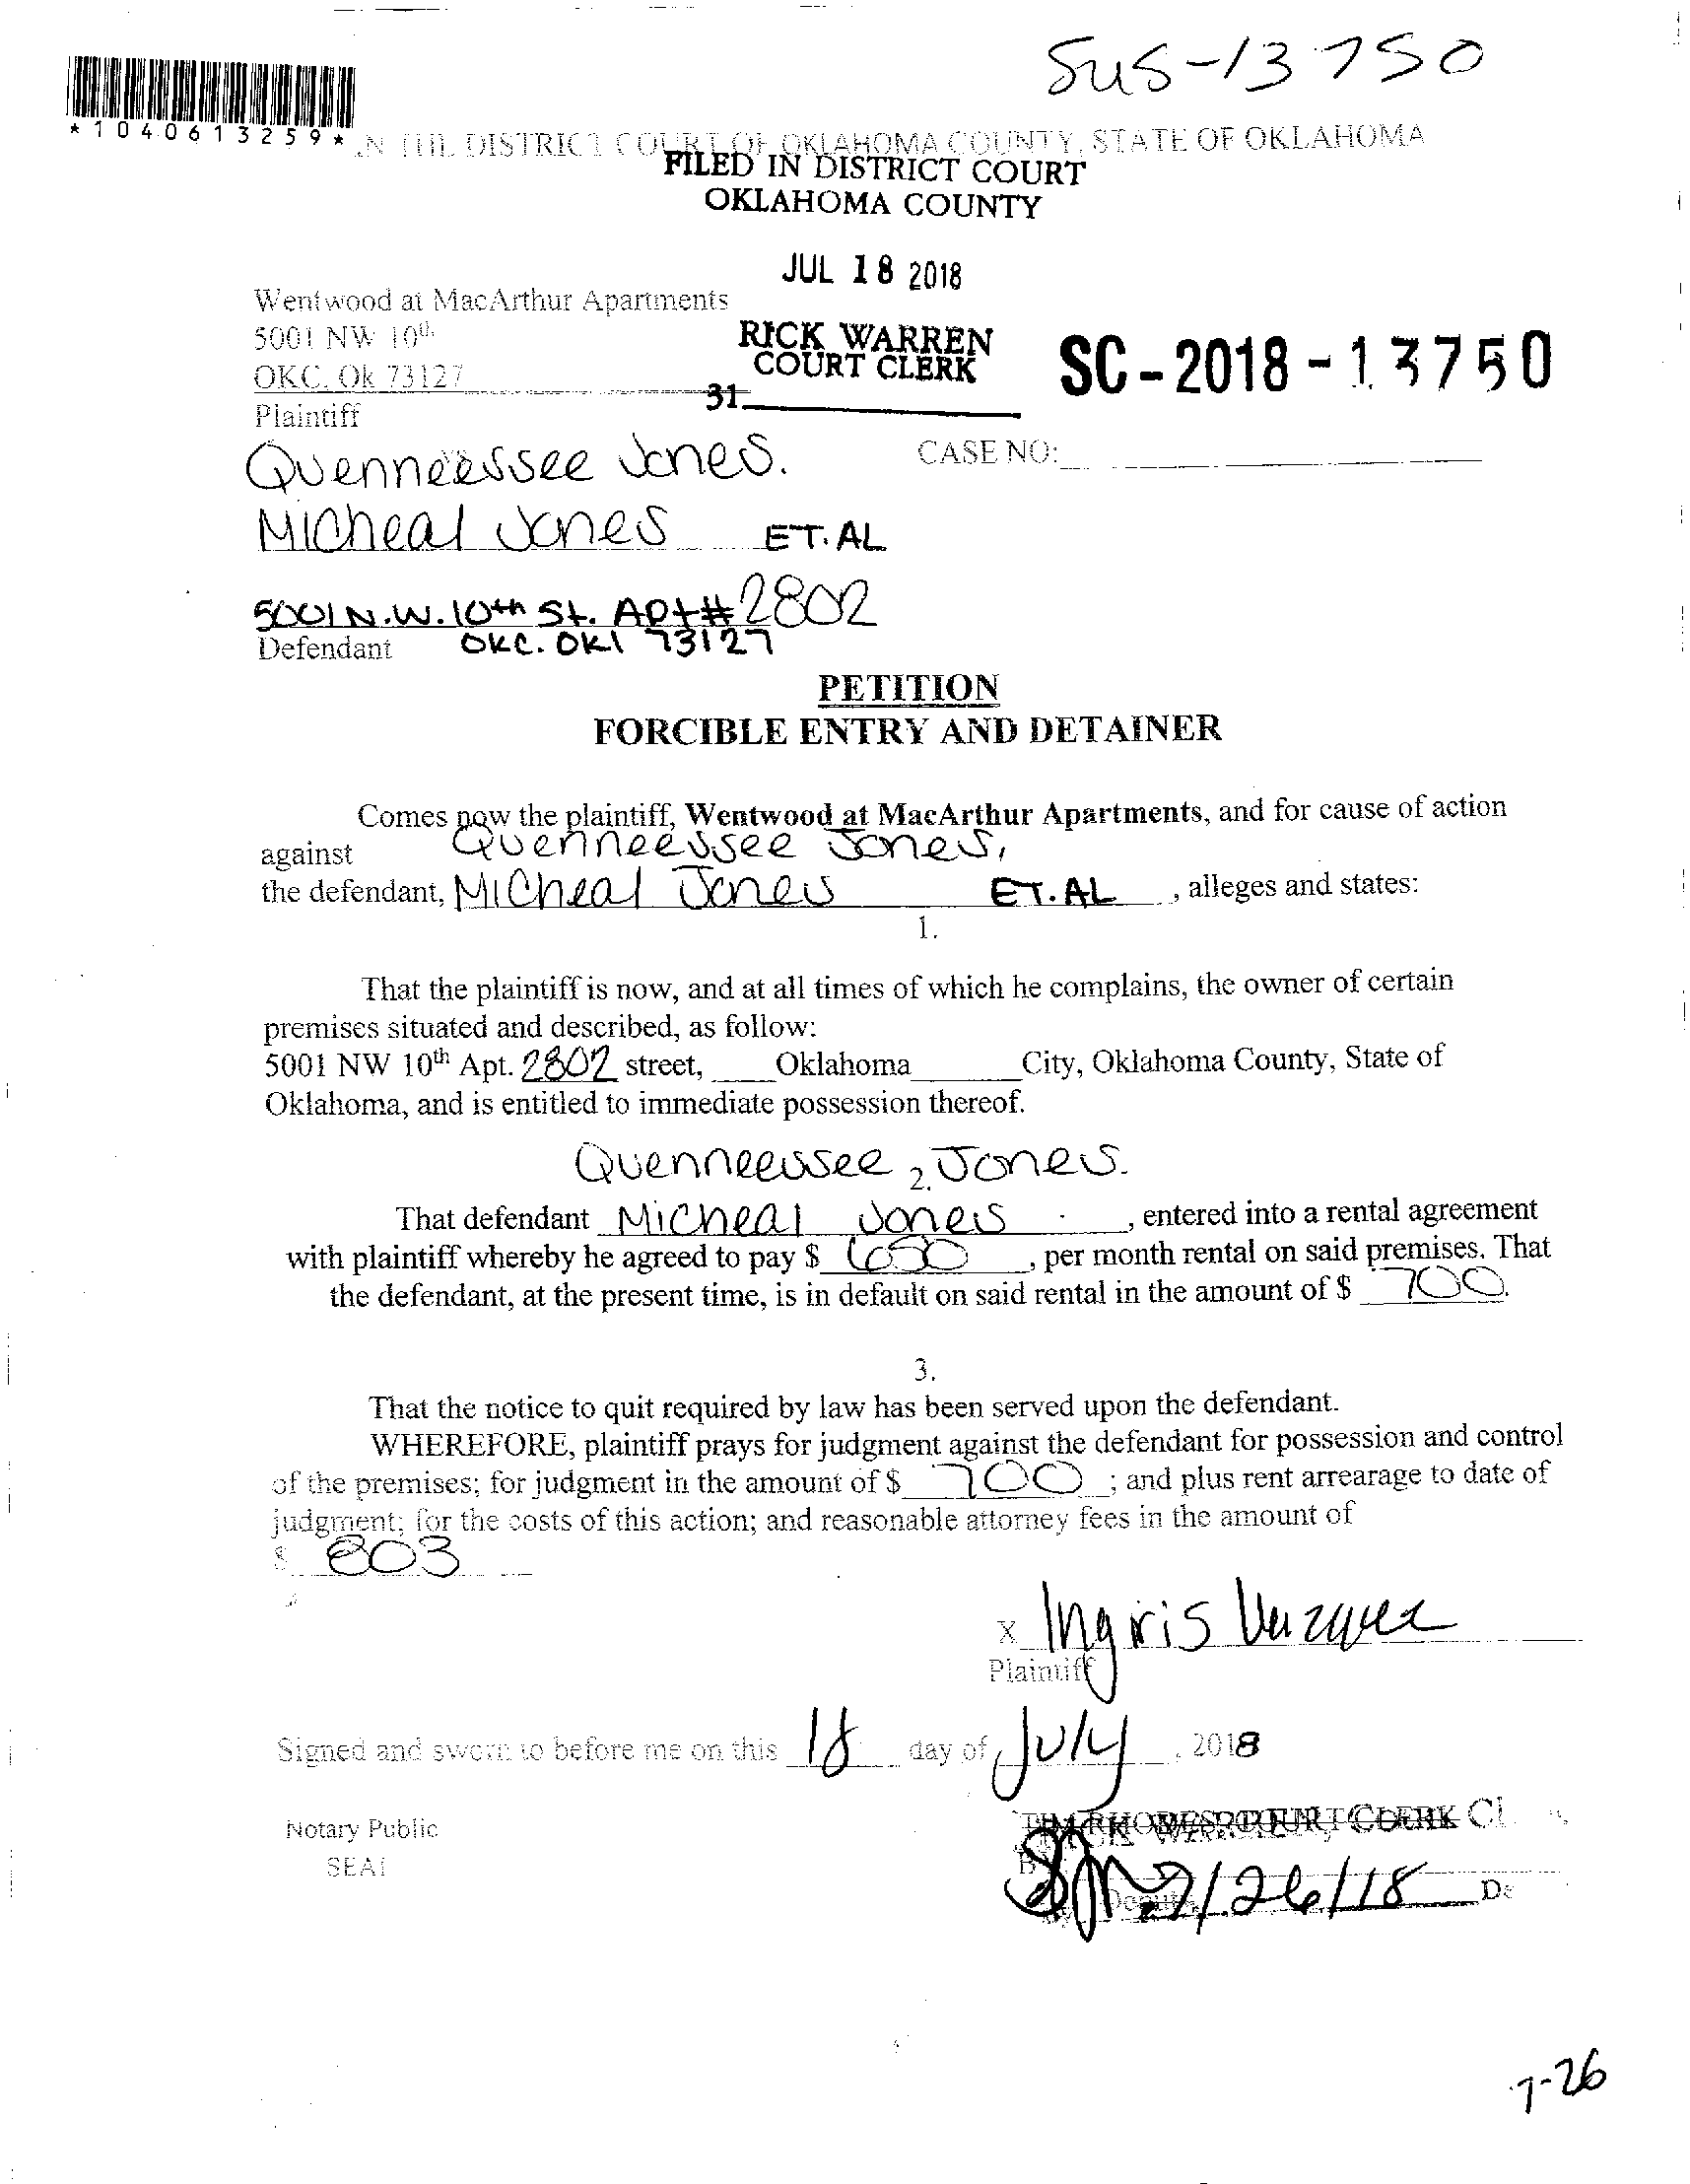 Sus-13750
*1040613259*
IN THE DISTRICT COURT OF OKLAHOMA COUNTY, STATE OF OKLAHOMA
FILED IN DISTRICT COURT
OKLAHOMA COUNTY
JUL 18 2018
Wentwood at MacArthur Apartments
5001 NW 10th
RICK WARREN
COURT CLERK
SC-2018-13750
OKC. Ok 73127
31
Plaintiff
Quenneessee Jones.
CASE NO:
Micheal Jones ET. AL
5001 N.W. 10th St. Apt# 2802
Defendant OKC. OKl 73127
PETITION
FORCIBLE ENTRY AND DETAINER
Comes now the plaintiff, Wentwood at MacArthur Apartments, and for cause of action
against Quenneessee Jones,
the defendant, Micheal Jones ET. AL, alleges and states:
1.
That the plaintiff is now, and at all times of which he complains, the owner of certain
premises situated and described, as follow:
5001 NW 10th Apt. 2802 street, Oklahoma City, Oklahoma County, State of
Oklahoma, and is entitled to immediate possession thereof.
Quenneessee Jones.
2.
That defendant Micheal Jones, entered into a rental agreement
with plaintiff whereby he agreed to pay $ 650, per month rental on said premises. That
the defendant, at the present time, is in default on said rental in the amount of $ 700.
3.
That the notice to quit required by law has been served upon the defendant.
WHEREFORE, plaintiff prays for judgment against the defendant for possession and control
of the premises; for judgment in the amount of $ 700; and plus rent arrearage to date of
judgment; for the costs of this action; and reasonable attorney fees in the amount of
$ 803
x Ingris Vazquez
Plaintiff
Signed and sworn to before me on this 18 day of July, 2018
Notary Public
SEAL
COURT CLERK
By
7/26/18
Deputy
7-26